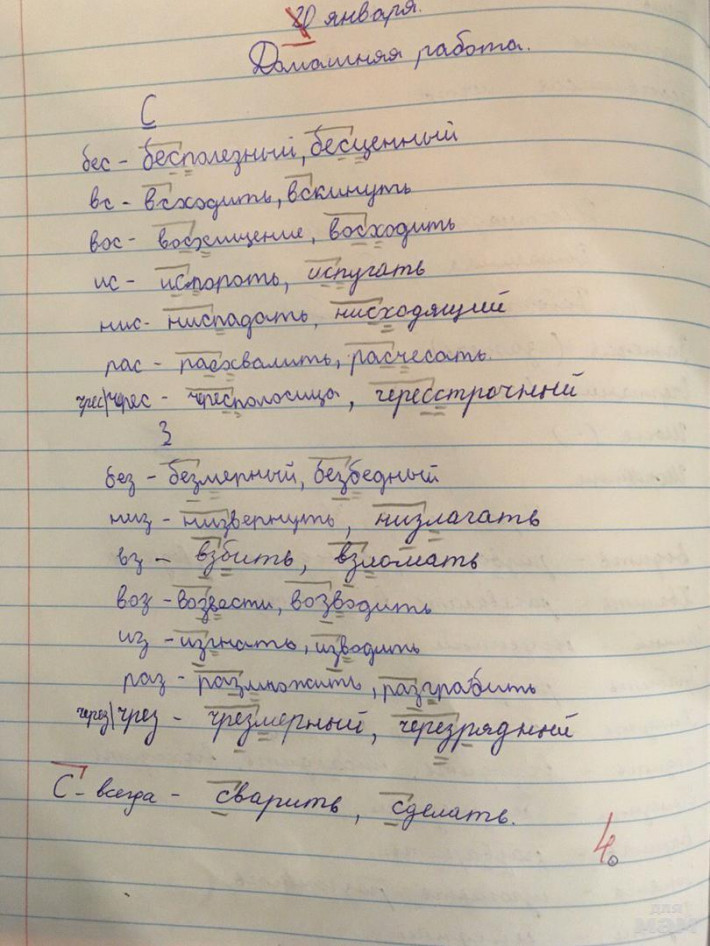 20 января.
Домашняя работа.
С
бес - бесполезный, бесценный
вс - всходить, вскинуть
вос - восхищение, восходить
ис - испороть, испугать
нис - ниспадать, нисходящий
рас - расхвалить, расчесать.
чрес/черес - чересполосица, чересстрочный
З
без - безмерный, безбедный
низ - низвернуть, низлагать
вз - взбить, взломать
воз - возвести, возводить
из - изгнать, изводить
раз - размножить, разграбить
через/чрез - чрезмерный, черезрядный
С - всегда - сварить, сделать.
4.
для